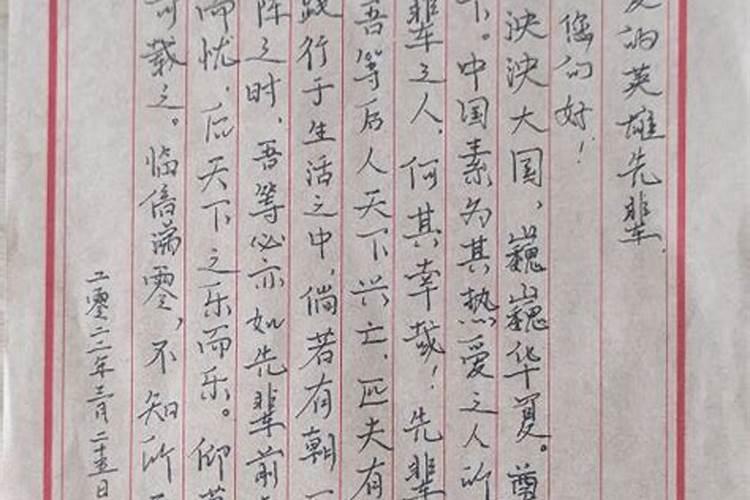 爱的英雄先辈，
您们好！
泱泱大国，巍巍华夏。
下。中国素为其热爱之人所
辈之人，何其幸哉！先辈
吾等后人天下兴亡，匹夫有
践行于生活之中，倘若有朝一
阵之时，吾等必亦如先辈前
而忧，后天下之乐而乐。仰
可载之。临信涕零，不知所
二零二二年三月二十五日